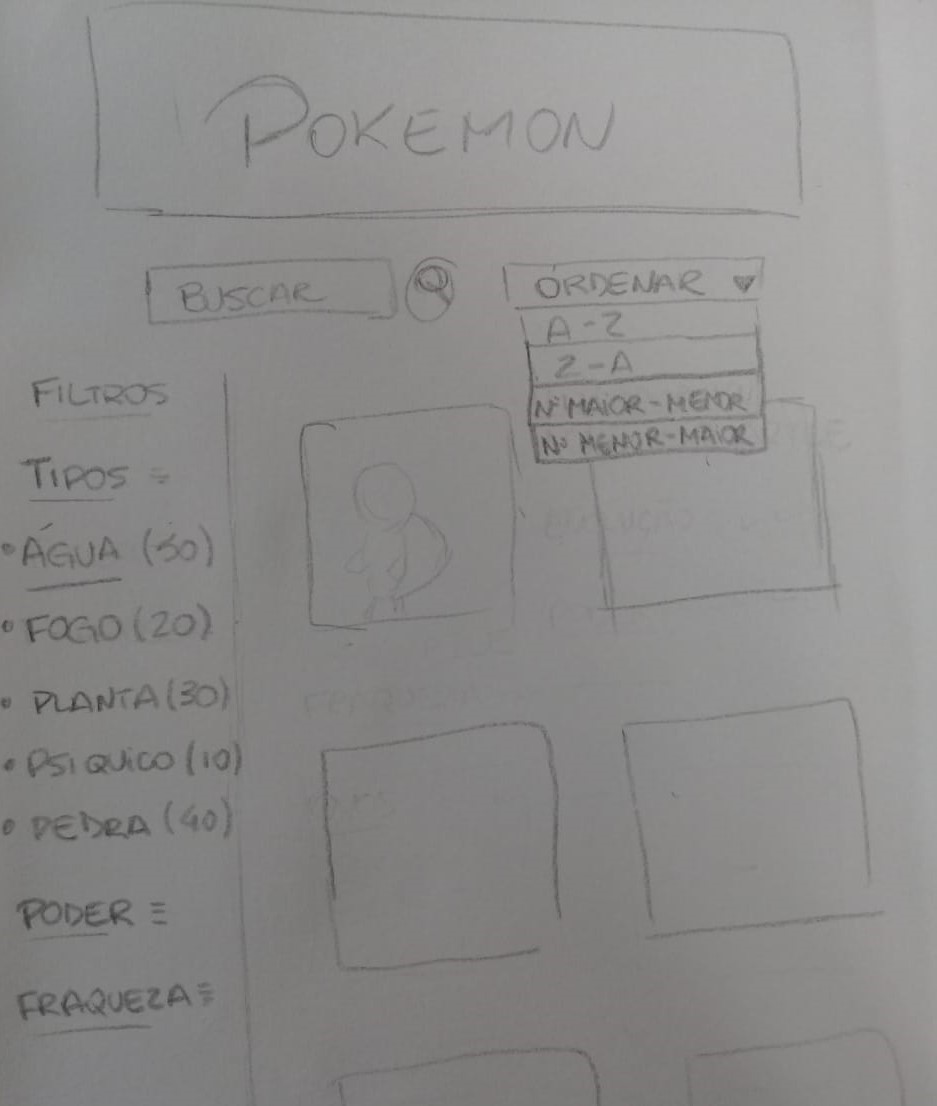 POKEMON
BUSCAR
ORDENAR
A-Z
Z-A
Nº MAIOR-MENOR
Nº MENOR-MAIOR
FILTROS
TIPOS
• ÁGUA (50)
• FOGO (20)
• PLANTA (30)
• PSIQUICO (10)
• PEDRA (40)
PODER
FRAQUEZA